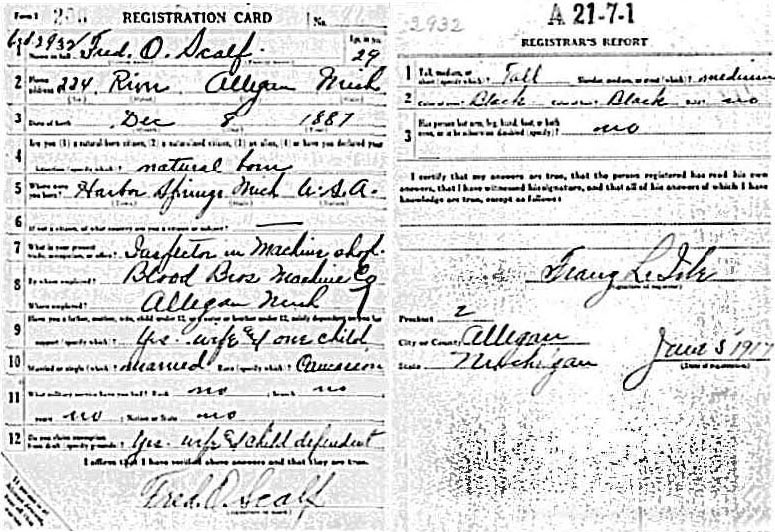 Form 1 REGISTRATION CARD No.
1 Fred. O. Scalf. Age, in yrs. 29
2 Home address 224 River Allegan Mich
3 Date of birth Dec 8 1887
Are you (1) a natural-born citizen, (2) a naturalized citizen, (3) an alien, (4) or have you declared your
4 intention (specify which)? natural born
5 Where were you born? Harbor Springs Mich U.S.A.
6 If not a citizen, of what country are you a citizen or subject?
7 What is your present trade, occupation, or office? Inspector in Machine shop.
8 By whom employed? Blood Bros Machine Co
Where employed? Allegan Mich
9 Have you a father, mother, wife, child under 12, or a sister or brother under 12, solely dependent on you for
support (specify which)? Yes. wife & one child
10 Married or single (which)? married Race (specify which)? Caucasion
11 What military service have you had? Rank no ; branch no
years no ; Nation or State no
12 Do you claim exemption from draft (specify grounds)? Yes. wife & child dependent
I affirm that I have verified above answers and that they are true.
Fred. O. Scalf
2932
A 21-7-1
REGISTRAR'S REPORT
1 Tall, medium, or short (specify which)? Tall Slender, medium, or stout (which)? medium
2 Black Black no
3 Has person lost arm, leg, hand, foot, or both eyes, or is he otherwise disabled (specify)? no
I certify that my answers are true, that the person registered has read his own
answers, that I have witnessed his signature, and that all of his answers of which I have
knowledge are true, except as follows:
Precinct 2
City or County Allegan
State Michigan June 5 1917
(Date of registration)